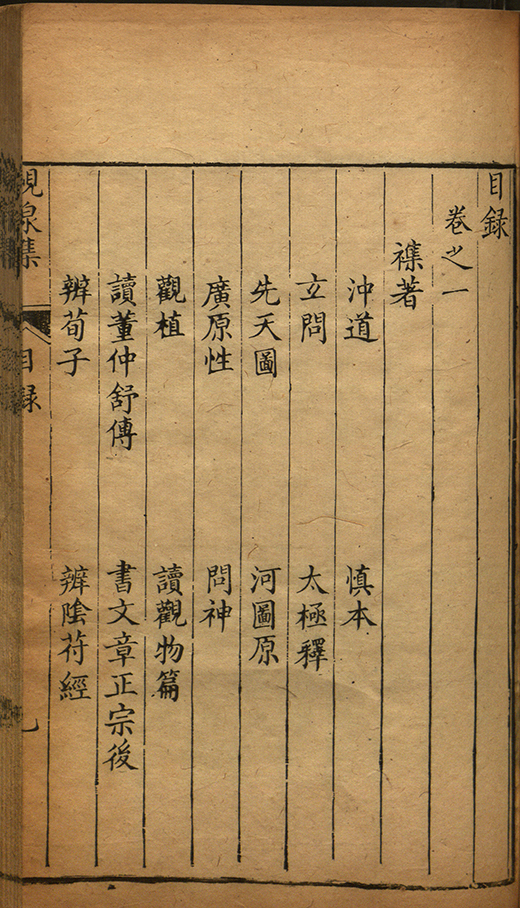 目録
卷之一
襍著
沖道 慎本
玄問 太極釋
先天圖 河圖原
廣原性 問神
觀植 讀觀物篇
讀董仲舒傳 書文章正宗後
辯荀子 辯陰符經
峴泉集 目録